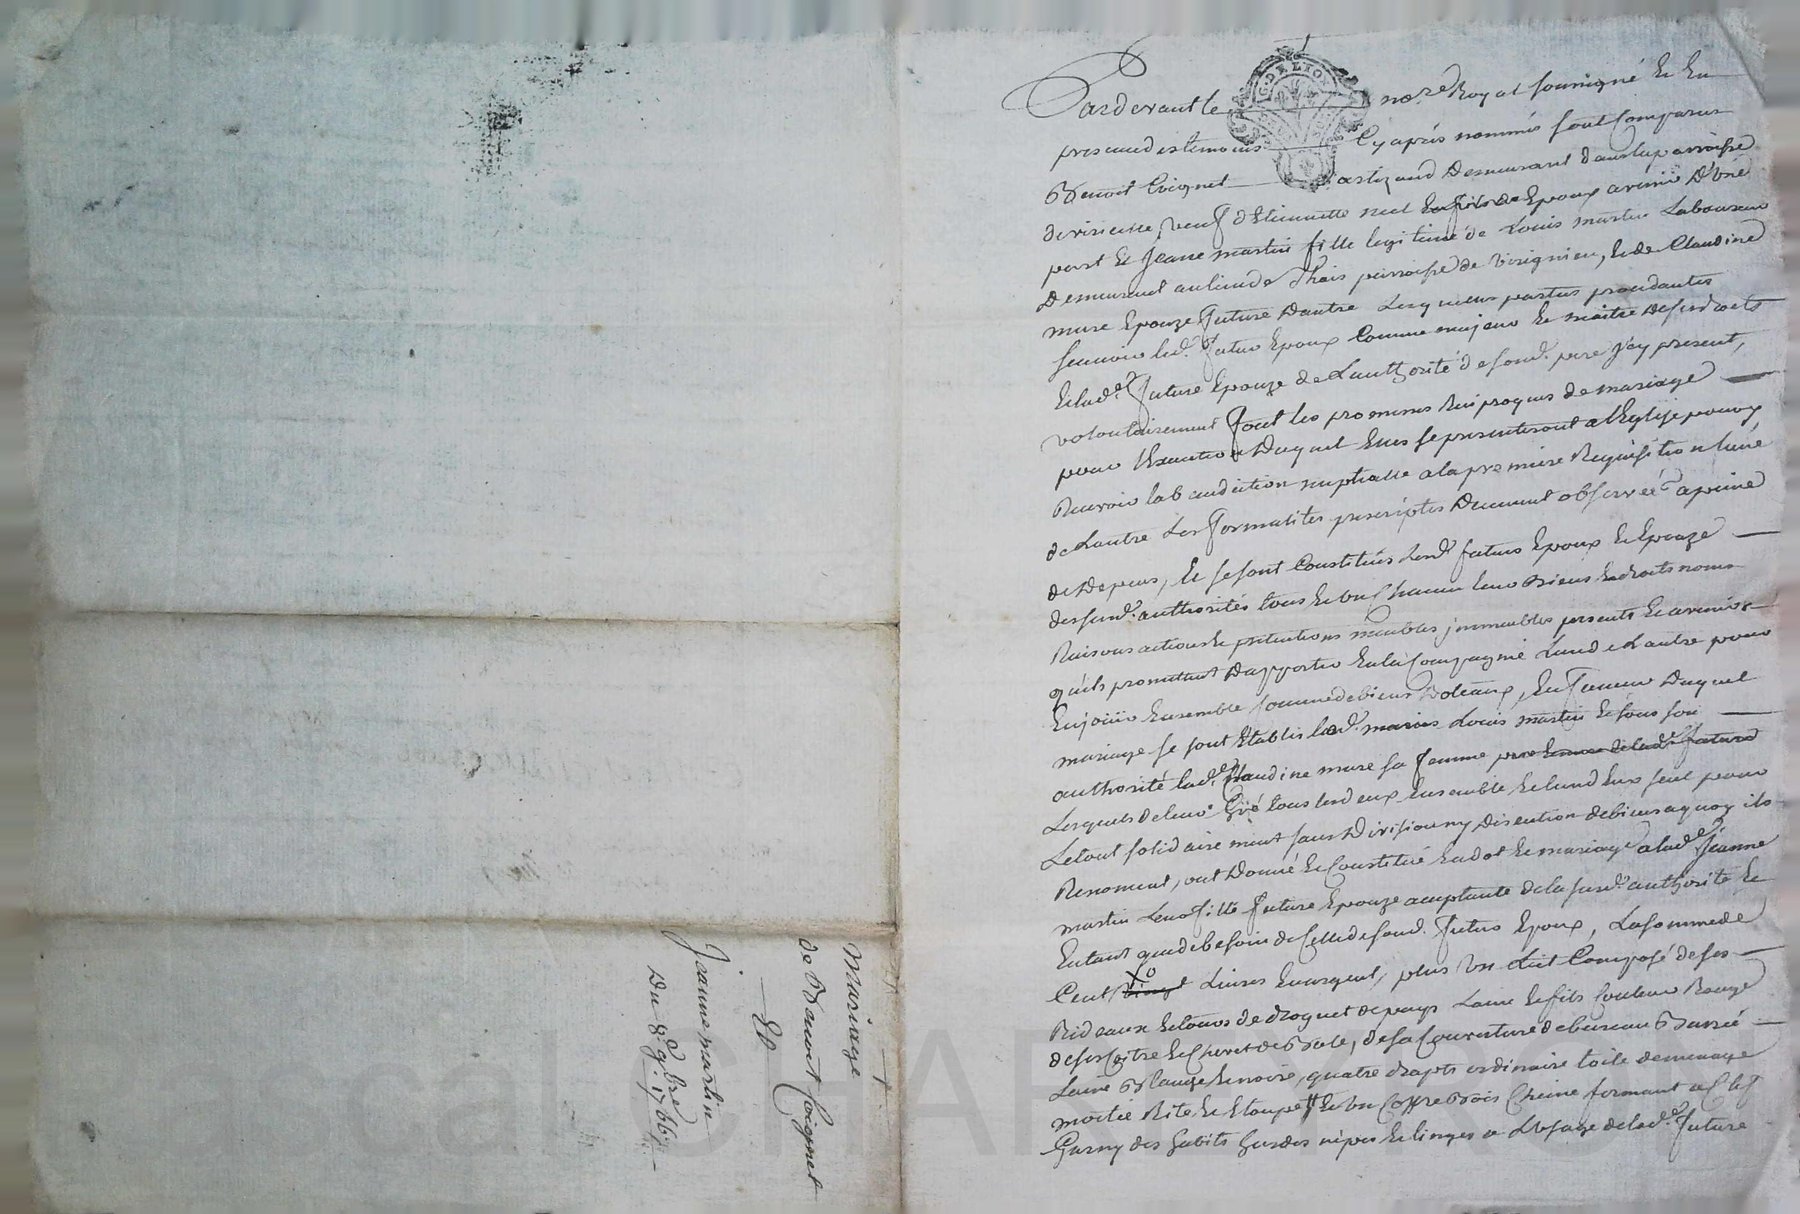 Mariage
de Benoit Coignet
Et
Jeanne martin
Du 8e 9bre 1766
Pardevant le nore Royal soussigné Et En
presence des temoins Cyaprés nommés sont Comparus
Benoit Coignet artizand Demeurant dans la parroisse
veuf d'Etiennette Epoux avenir D'une
part Et Jeane martin fille legitime de Louis martin Laboureur
Demeurant au lieu de Thois parroisse de virignieu, Et de Claudine
mure Epouze future Dautre Lesquelles parties procedantes
scavoir led. futur Epoux Comme majeur Et maitre de ses droits
Et lad.e future Epouze de Lauthorité de sond. pere j'cy present,
volontairement font les promesses Reciproques de mariage
pour l'Execution Duquel Elles se presenteront a l'Eglise pour y
Recevoir la benediction nuptialle a la premiere Requisition l'une
de Lautre Les formalités prescriptes Deument observées a peine
de Depens, Et se sont Constitués Lesd. futurs Epoux Et Epouze
des susd. authorités tous Et un Chacun leur Biens Et droits noms
Raisons actions Et pretentions meubles jmmeubles presents Et avenirs
quils promettent Dapporter En la Compagnie Lun de Lautre pour
En jouir Ensemble Comme de biens Doteaux, En faveur Duquel
mariage se sont Etablis led. Louis martin Et sous son
authorité lad.e Claudine mure sa femme
Lesquels de leur Gré tous les deux Ensemble Et lund Eux seul pour
Le tout solidairement sans Division ny Discution de biens a quoy ils
Renoncent, ont Donné Et Constitué En dot Et mariage a lad.e Jeanne
martin Leur fille future Epouze acceptante de la susd. authorité Et
Entant que de besoin de Celle de sond. futur Epoux, La somme de
Cent Livres En argent, plus un Lict Composé de ses
Rideaux Et tours de droguet de pays Laine Et fils Couleur Rouge
de sa Coitre Et Chevet de Bale, de sa Couverture de bureau Barrée
Laine Blanche Et noire, quatre draps ordinaire toile de menage
moitié Rite Et Etoupe Et un Coffre Bois Cheine fermant a Clef
Garny des habits hardes nipes Et linges a L'usage de lad.e future